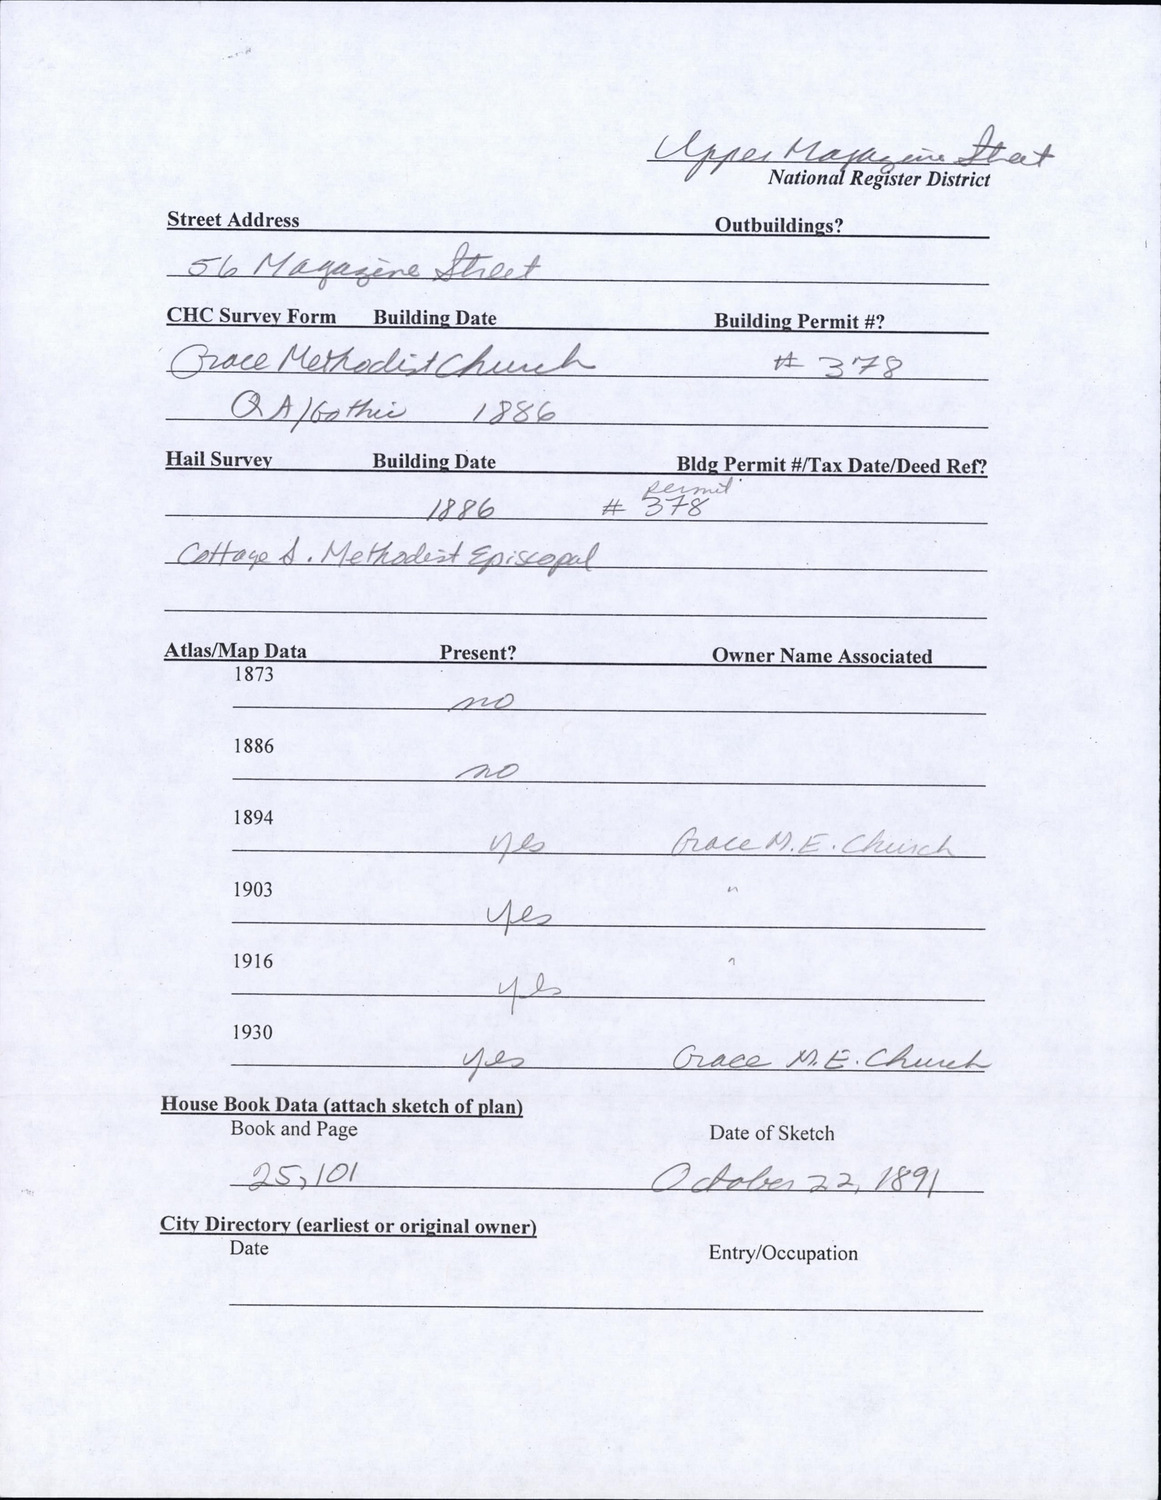 Upper Magazine Street
National Register District
Street Address Outbuildings?
56 Magazine Street
CHC Survey Form Building Date Building Permit #?
Grace Methodist Church # 378
QA/Gothic 1886
Hail Survey Building Date Bldg Permit #/Tax Date/Deed Ref?
permit
1886 # 378
Cottage S. Methodist Episcopal
Atlas/Map Data Present? Owner Name Associated
1873
no
1886
no
1894
yes Grace M.E. Church
1903 "
yes
1916 "
yes
1930
yes Grace M.E. Church
House Book Data (attach sketch of plan)
Book and Page Date of Sketch
25,101 October 22, 1891
City Directory (earliest or original owner)
Date Entry/Occupation